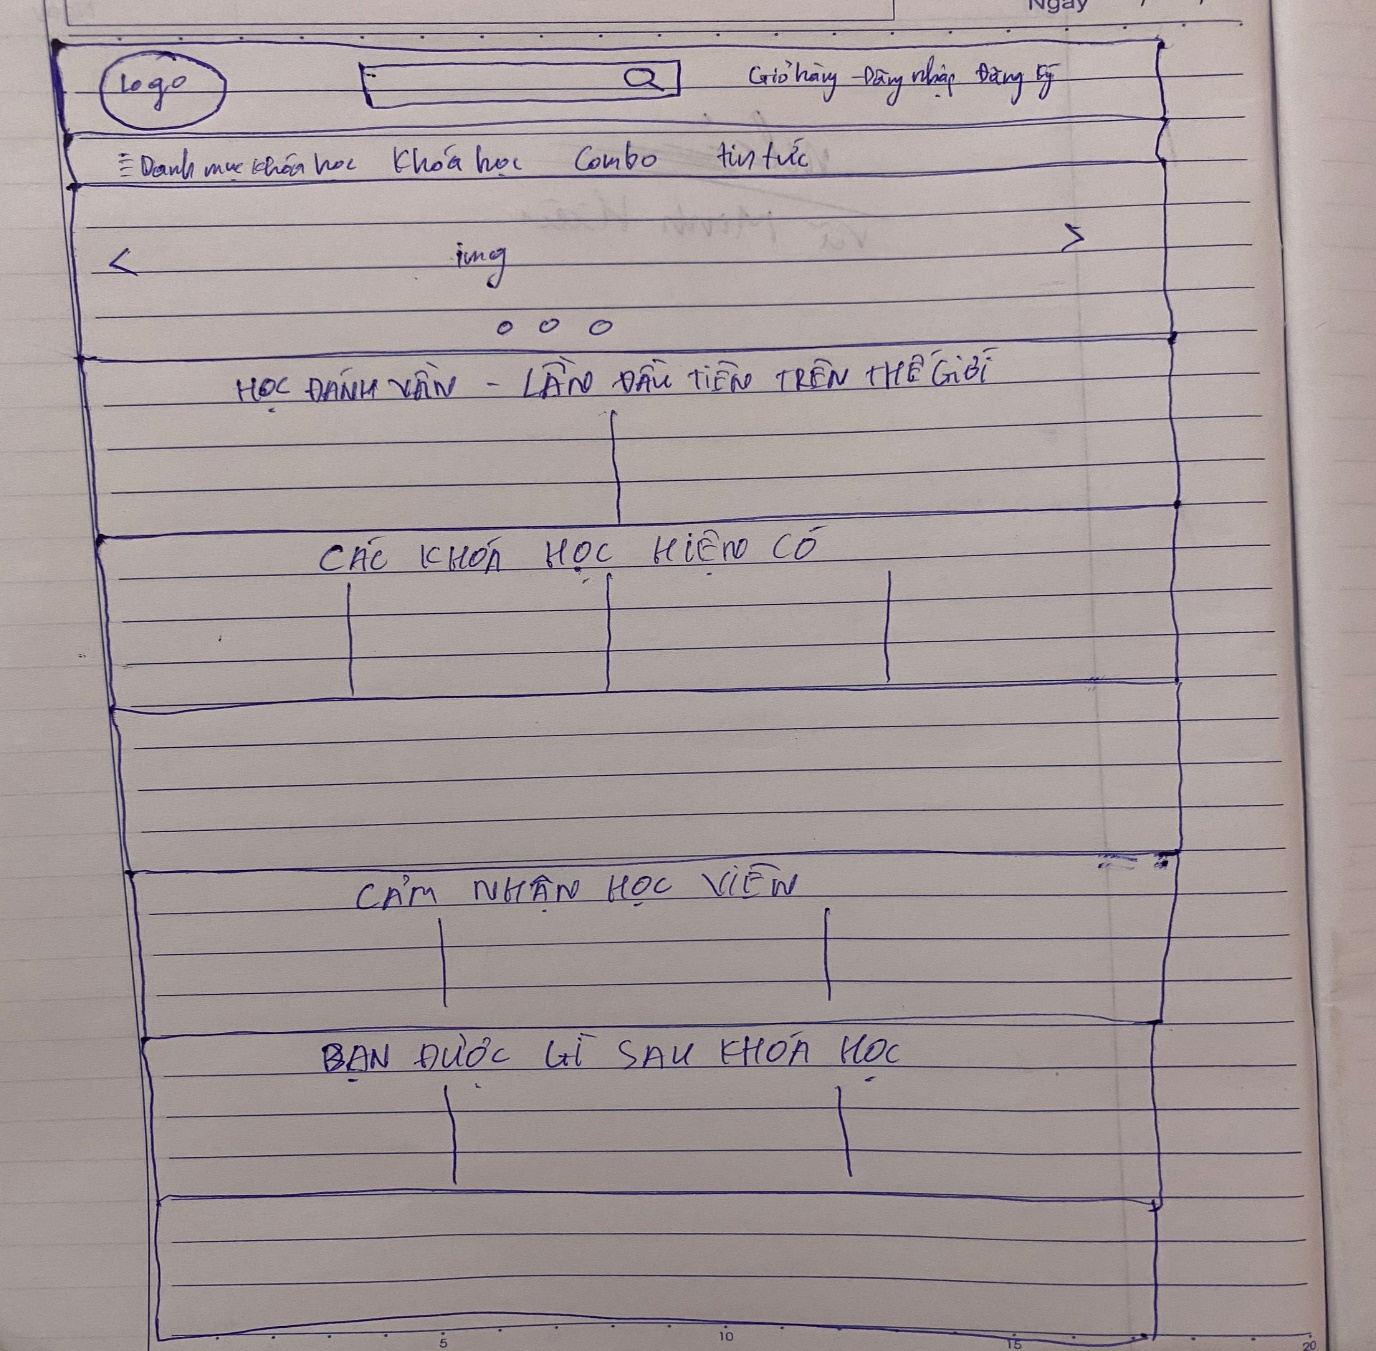 Ngày / /
Logo Giỏ hàng - Đăng nhập Đăng ký
Danh mục khóa học Khoá học Combo tin tức
< img >
HỌC ĐÁNH VẦN - LẦN ĐẦU TIÊN TRÊN THẾ GIỚI
CÁC KHOÁ HỌC HIỆN CÓ
CẢM NHẬN HỌC VIÊN
BẠN ĐƯỢC GÌ SAU KHOÁ HỌC
5 10 15 20